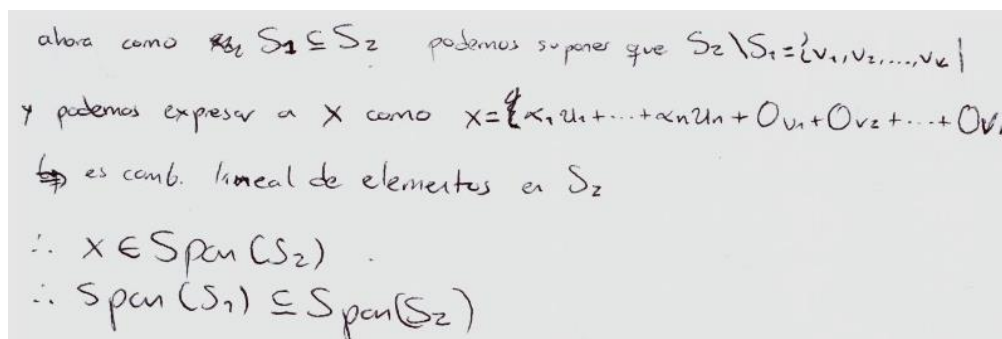 ahora como S₁ ⊆ S₂ podemos suponer que S₂ \ S₁ = {v₁, v₂, ..., vₖ}
y podemos expresar a X como x = α₁u₁ + ... + αₙuₙ + 0v₁ + 0v₂ + ... + 0v
↳ es comb. lineal de elementos en S₂
∴ X ∈ Span(S₂)
∴ Span(S₁) ⊆ Span(S₂)